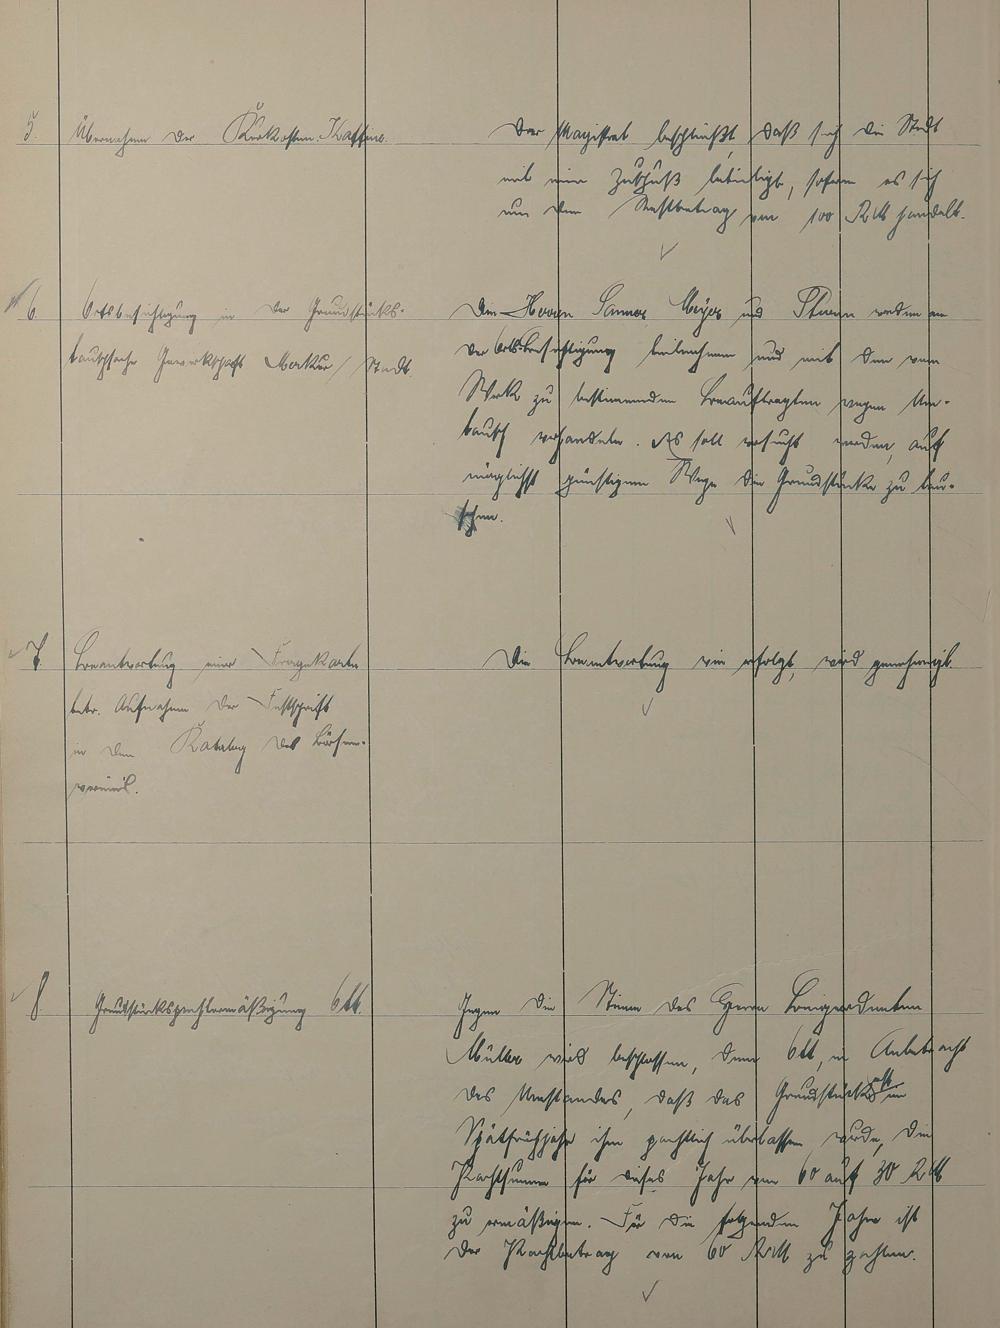 5. Übernahme der Kurkosten.
Der Magistrat beschließt, daß sich die Stadt
mit einem Zuschuß beteiligt, sofern es sich
um den Restbetrag von 100 RM handelt.
6. Ortsbesichtigung in der Grundstücks-
tauschsache Gewerkschaft Merkur / Stadt.
Die Herren Meyer und werden an
der Ortsbesichtigung teilnehmen und mit dem vom
Werk zu bestimmenden Beauftragten wegen Um-
tausch verhandeln. Es soll versucht werden, auf
möglichst günstigem Wege die Grundstücke zu tau-
schen.
7. Beantwortung einer Fragekarte
betr. Aufnahme der Festschrift
in den Katalog des Börsen-
vereins.
Die Beantwortung wie erfolgt, wird genehmigt.
8. Grundstückspachtermäßigung Ott.
Gegen die Stimme des Herrn Beigeordneten
Müller wird beschlossen, dem Ott, in Anbetracht
des Umstandes, daß das Grundstück erst im
Spätfrühjahr ihm pachtlich überlassen wurde, die
Pachtsumme für dieses Jahr von 60 auf 30 RM
zu ermäßigen. Für die folgenden Jahre ist
der Pachtbetrag von 60 RM zu zahlen.